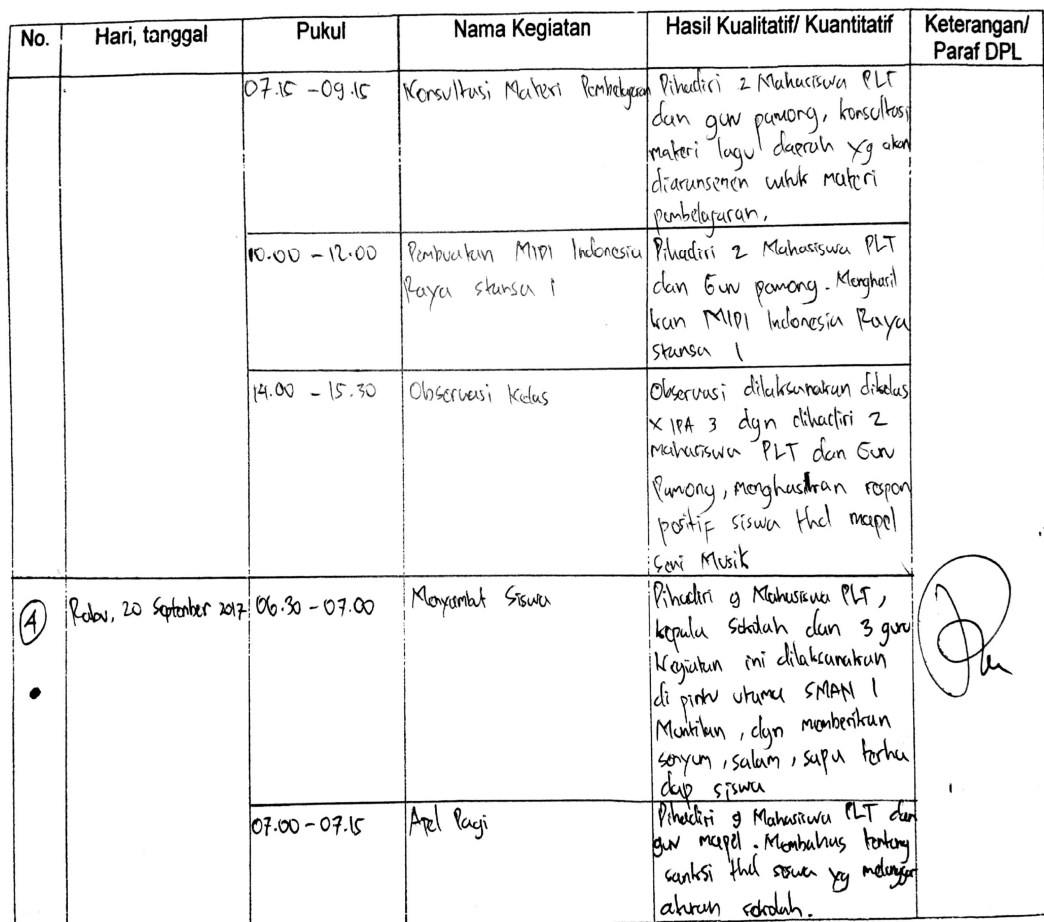 No. Hari, tanggal Pukul Nama Kegiatan Hasil Kualitatif/ Kuantitatif Keterangan/
Paraf DPL
07.15 - 09.15 Konsultasi Materi Pembelajaran Dihadiri 2 Mahasiswa PLT
dan guru pamong, konsultasi
materi lagu daerah yg akan
diaransemen untuk materi
pembelajaran,
10.00 - 12.00 Pembuatan MIDI Indonesia Dihadiri 2 Mahasiswa PLT
Raya stansa 1 dan Guru pamong. Menghasil
kan MIDI Indonesia Raya
stansa 1
14.00 - 15.30 Observasi Kelas Observasi dilaksanakan dikelas
X IPA 3 dgn dihadiri 2
Mahasiswa PLT dan Guru
Pamong, menghasilkan respon
positif siswa thd mapel
Seni Musik
4 Rabu, 20 September 2017 06.30 - 07.00 Menyambut Siswa Dihadiri 9 Mahasiswa PLT,
kepala Sekolah dan 3 guru
Kegiatan ini dilaksanakan
di pintu utama SMAN 1
Muntilan, dgn memberikan
senyum, salam, sapa terha
dap siswa
07.00 - 07.15 Apel Pagi Dihadiri 9 Mahasiswa PLT dan
guru mapel. Membahas tentang
sanksi thd siswa yg melanggar
aturan sekolah.